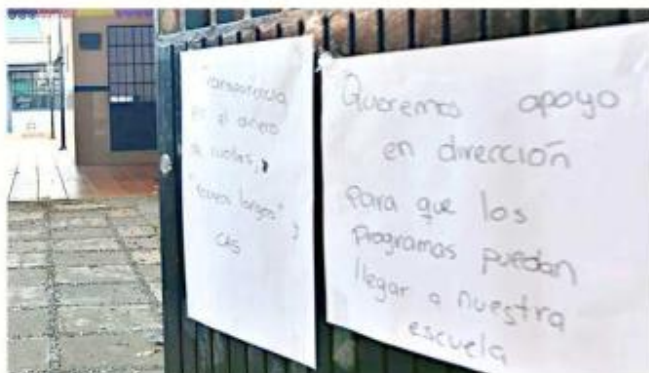 Transparencia
en el dinero
de cuotas,
largos" y
CAS
Queremos apoyo
en dirección
para que los
programas puedan
llegar a nuestra
escuela